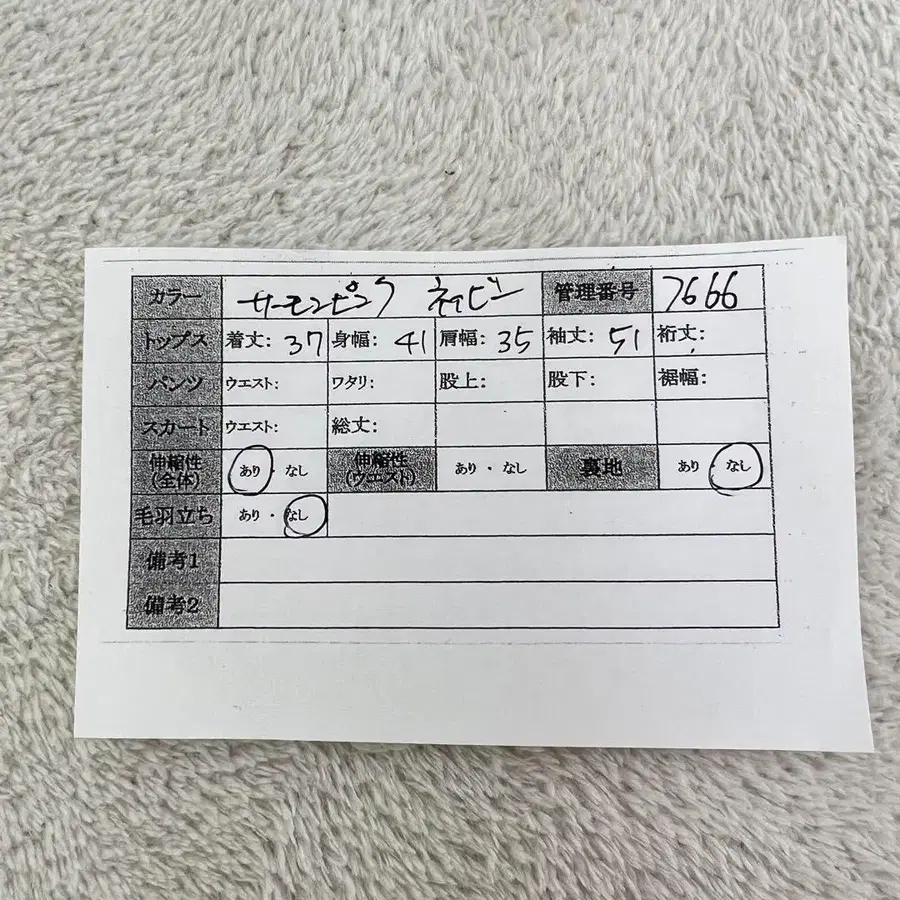 カラー サーモンピンク ネイビー 管理番号 7666
トップス 着丈: 37 身幅: 41 肩幅: 35 袖丈: 51 裄丈:
パンツ ウエスト: ワタリ: 股上: 股下: 裾幅:
スカート ウエスト: 総丈:
伸縮性 (全体) あり ・ なし 伸縮性 (ウエスト) あり ・ なし 裏地 あり ・ なし
毛羽立ち あり ・ なし
備考1
備考2